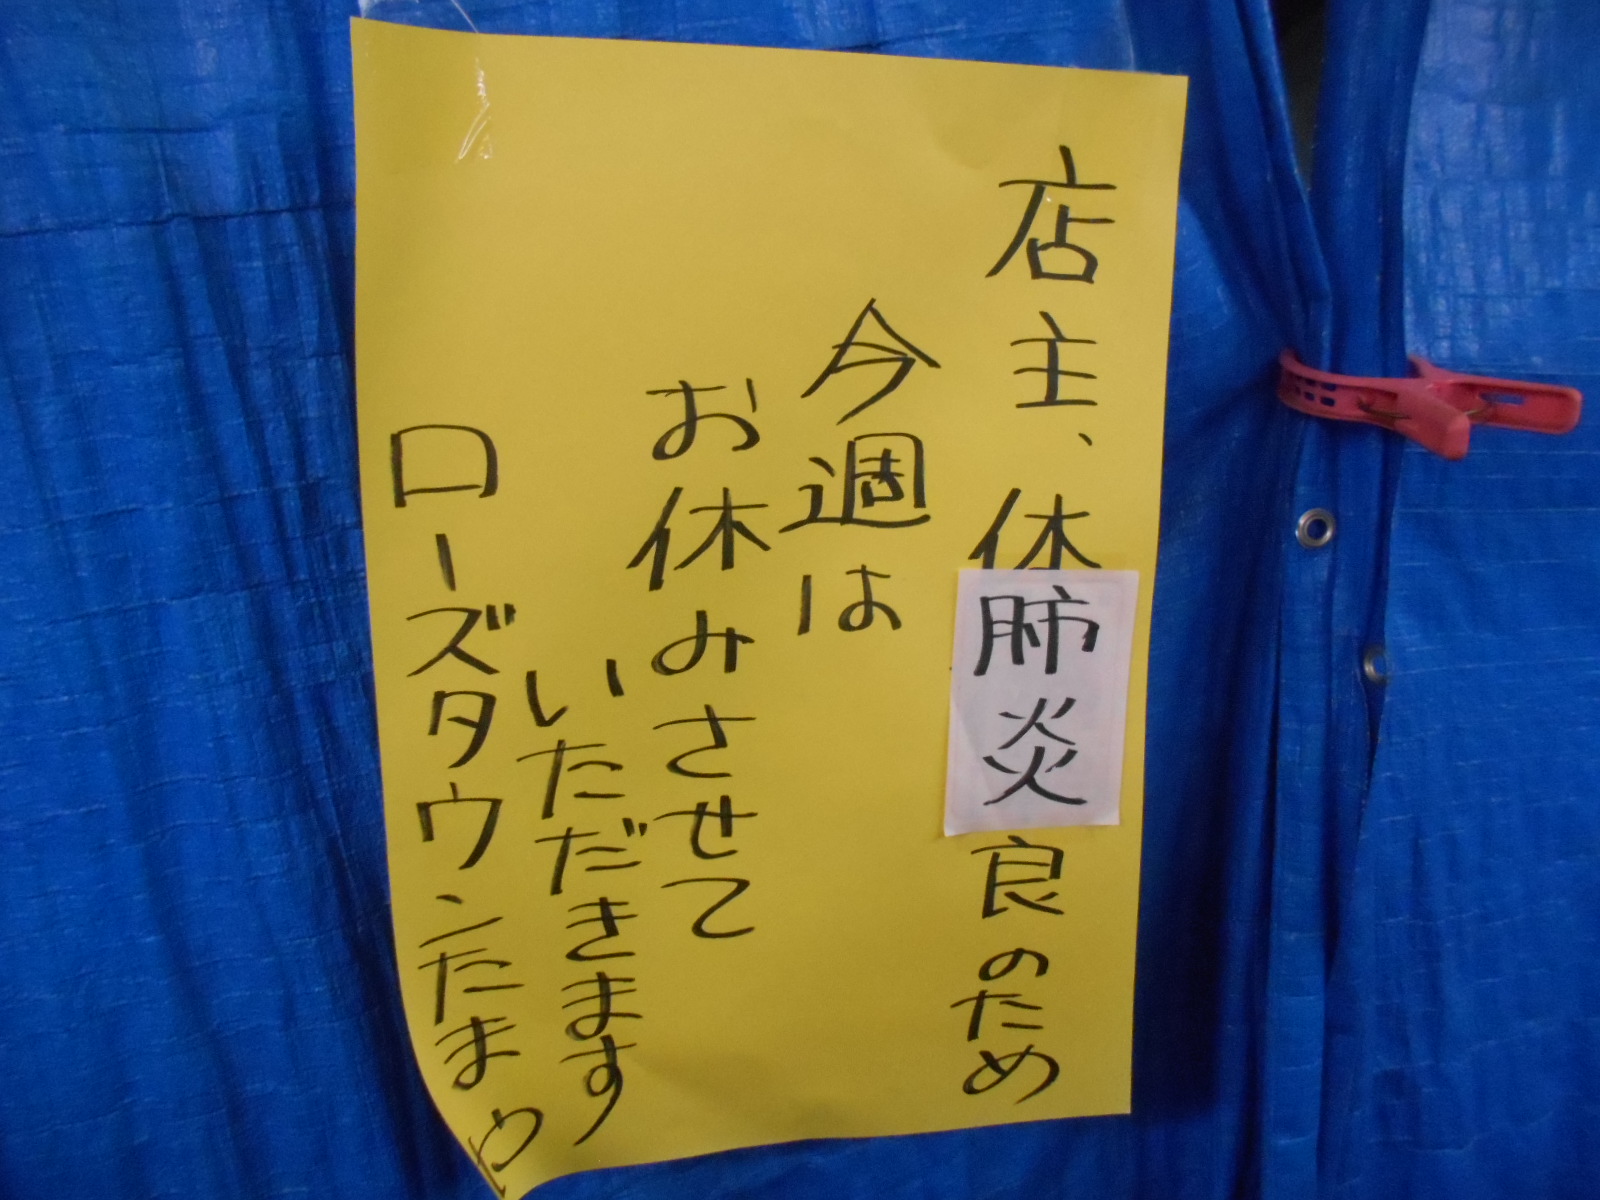 店主、体肺炎良のため
今週は
お休みさせて
いただきます
ローズタウンたまや